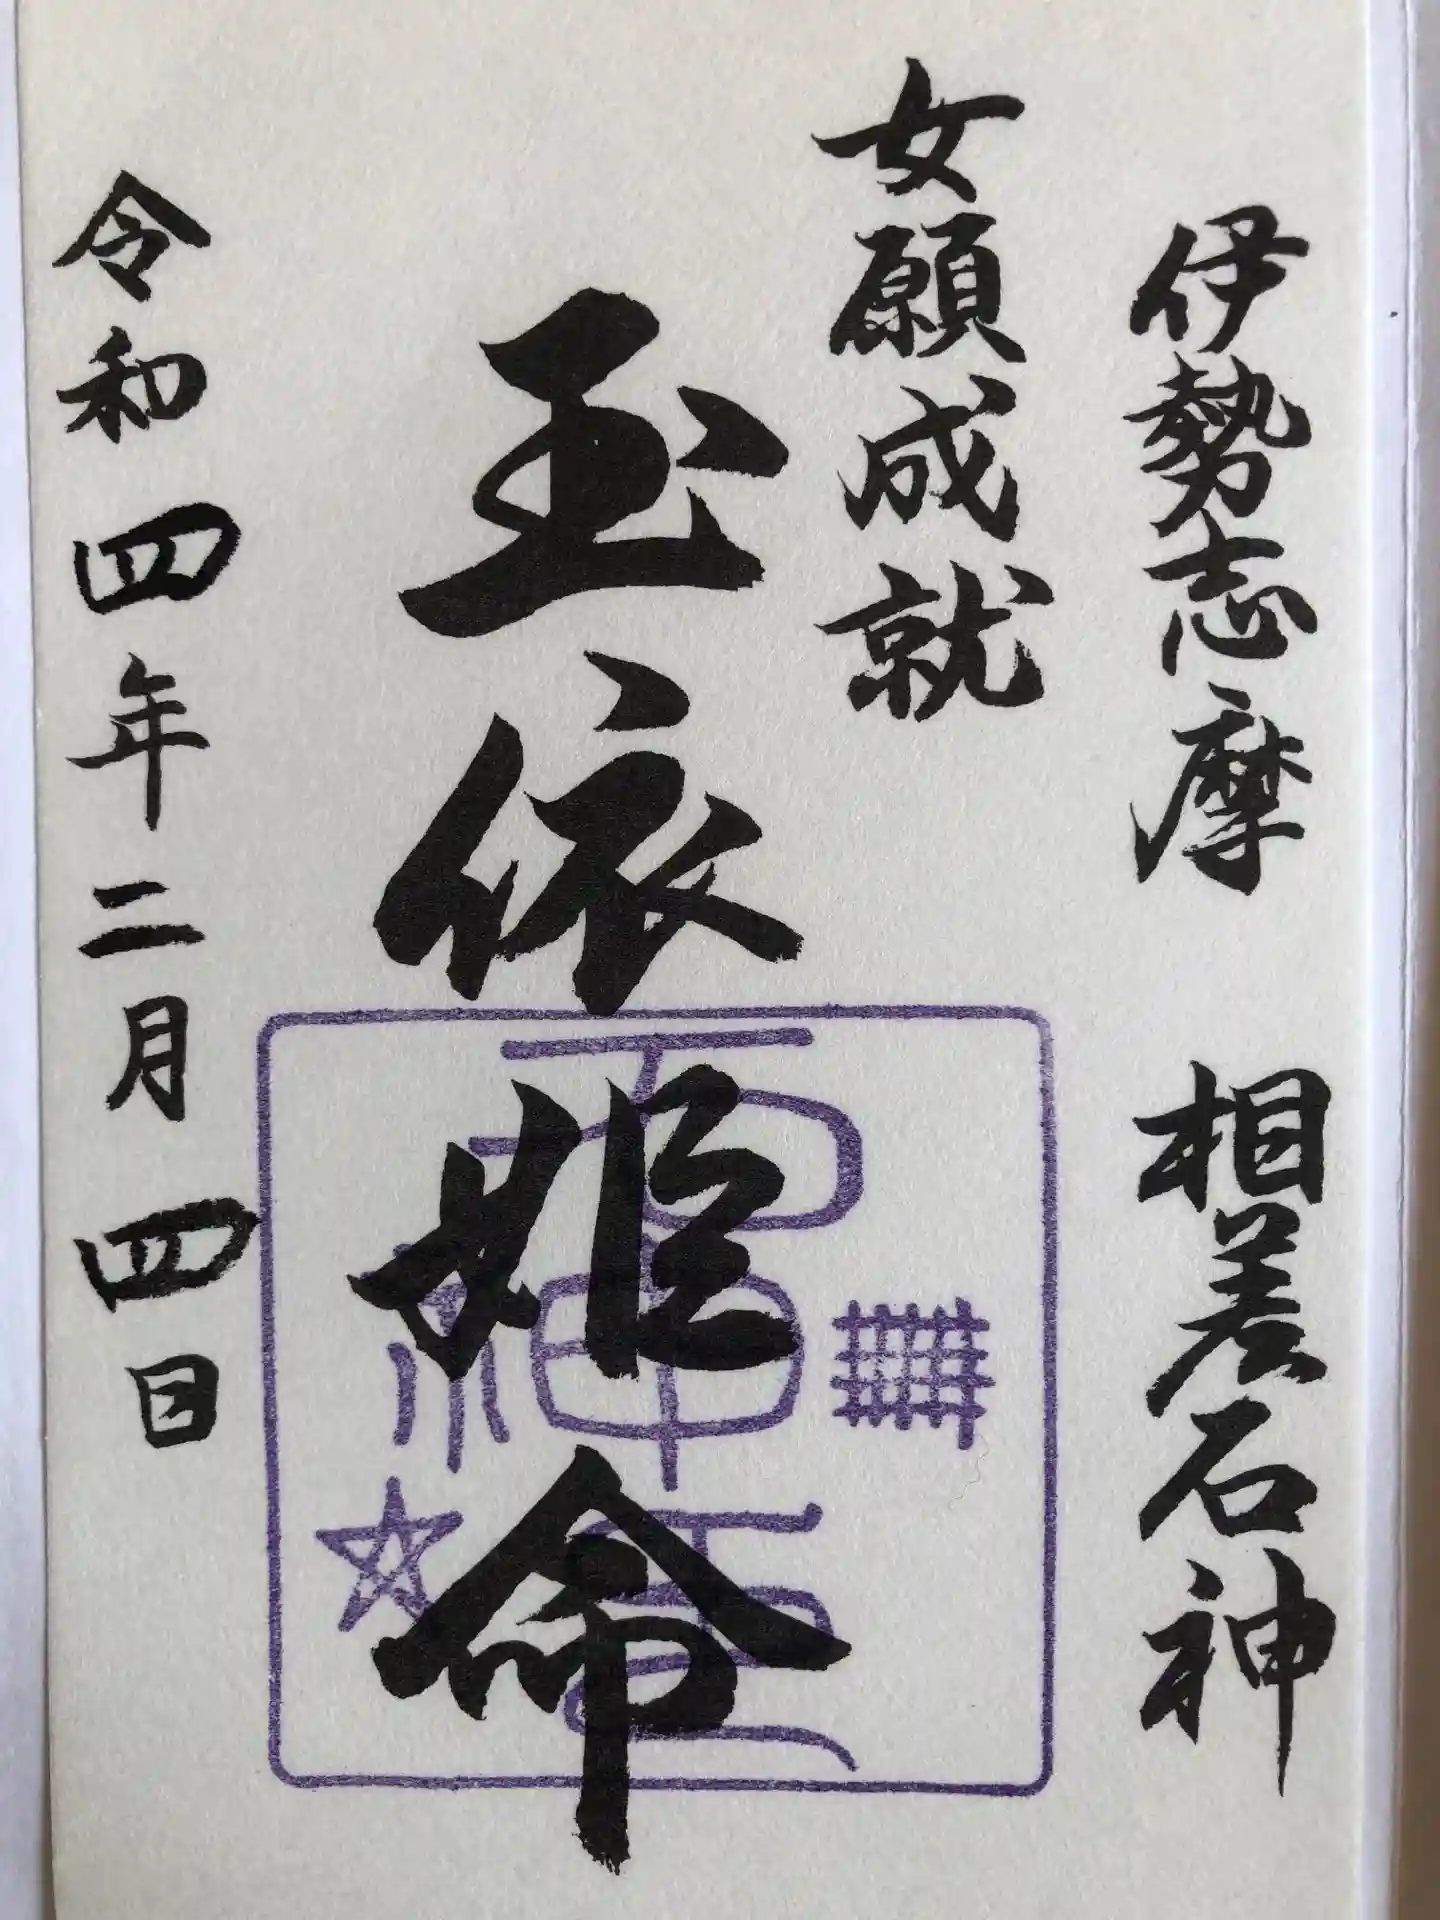 伊勢志摩 相差石神
女願成就
玉依姫命
石神
令和四年二月四日